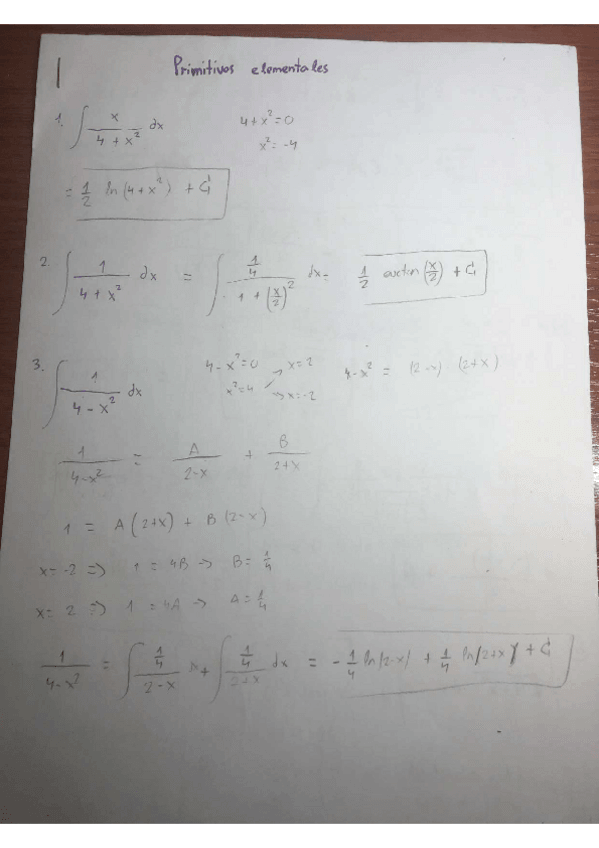 1
Primitivos elementales
1. ∫ x/(4 + x²) dx    4 + x² = 0
x² = -4
= 1/2 ln(4 + x²) + C
2. ∫ 1/(4 + x²) dx = ∫ (1/4)/(1 + (x/2)²) dx = 1/2 arctan(x/2) + C
3. ∫ 1/(4 - x²) dx    4 - x² = 0    x = 2    4 - x² = (2-x) (2+x)
x² = 4    → x = -2
1/(4-x²) = A/(2-x) + B/(2+x)
1 = A(2+x) + B(2-x)
x = -2 => 1 = 4B -> B = 1/4
x = 2 => 1 = 4A -> A = 1/4
1/(4-x²) = ∫ (1/4)/(2-x) x + ∫ (1/4)/(2+x) dx = -1/4 ln|2-x| + 1/4 ln|2+x| + C